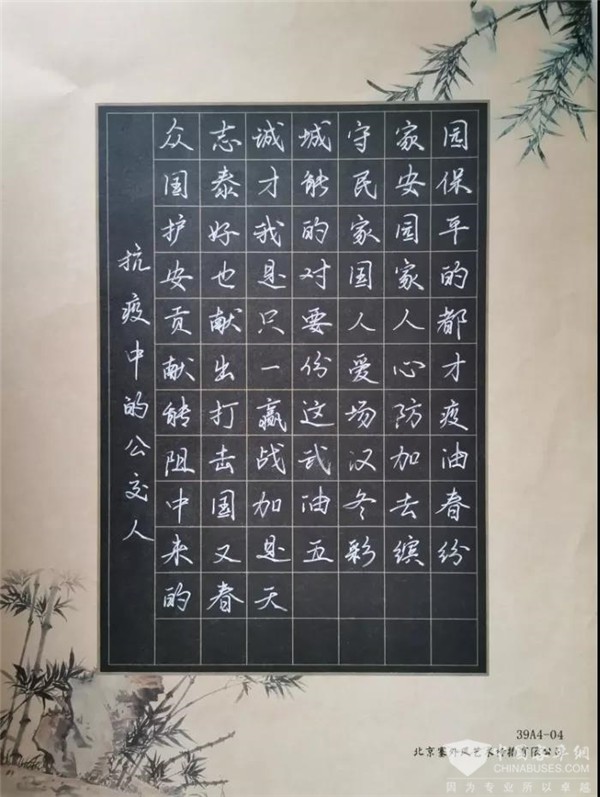 抗疫中的公交人
众志诚城守家园
国泰才能民安保
护好我的家园平
安也是对国家的
贡献只要人人都
献出一份爱心才
能打赢这场防疫
阻击战武汉加油
中国加油冬去春
来又是五彩缤纷
的春天
39A4-04
北京塞外风艺术传播有限公司
CHINABUSES.COM
因为专业所以卓越